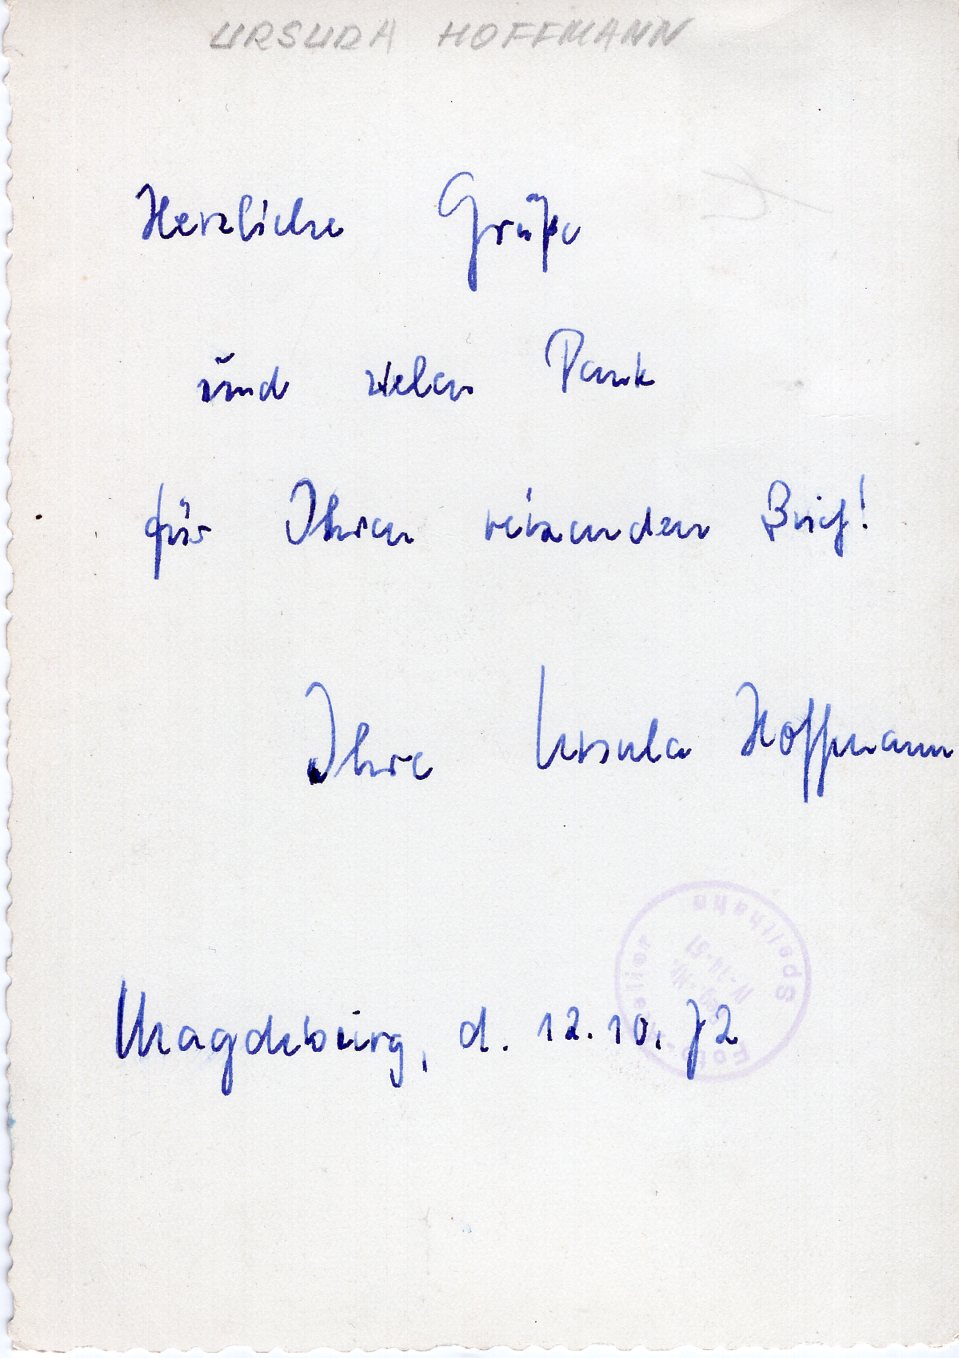 URSULA HOFFMANN
Herzliche Grüße
und vielen Dank
für Ihren reizenden Brief!
Ihre Ursula Hoffmann
Magdeburg, d. 12.10.72
Foto-Atelier Spelhahn